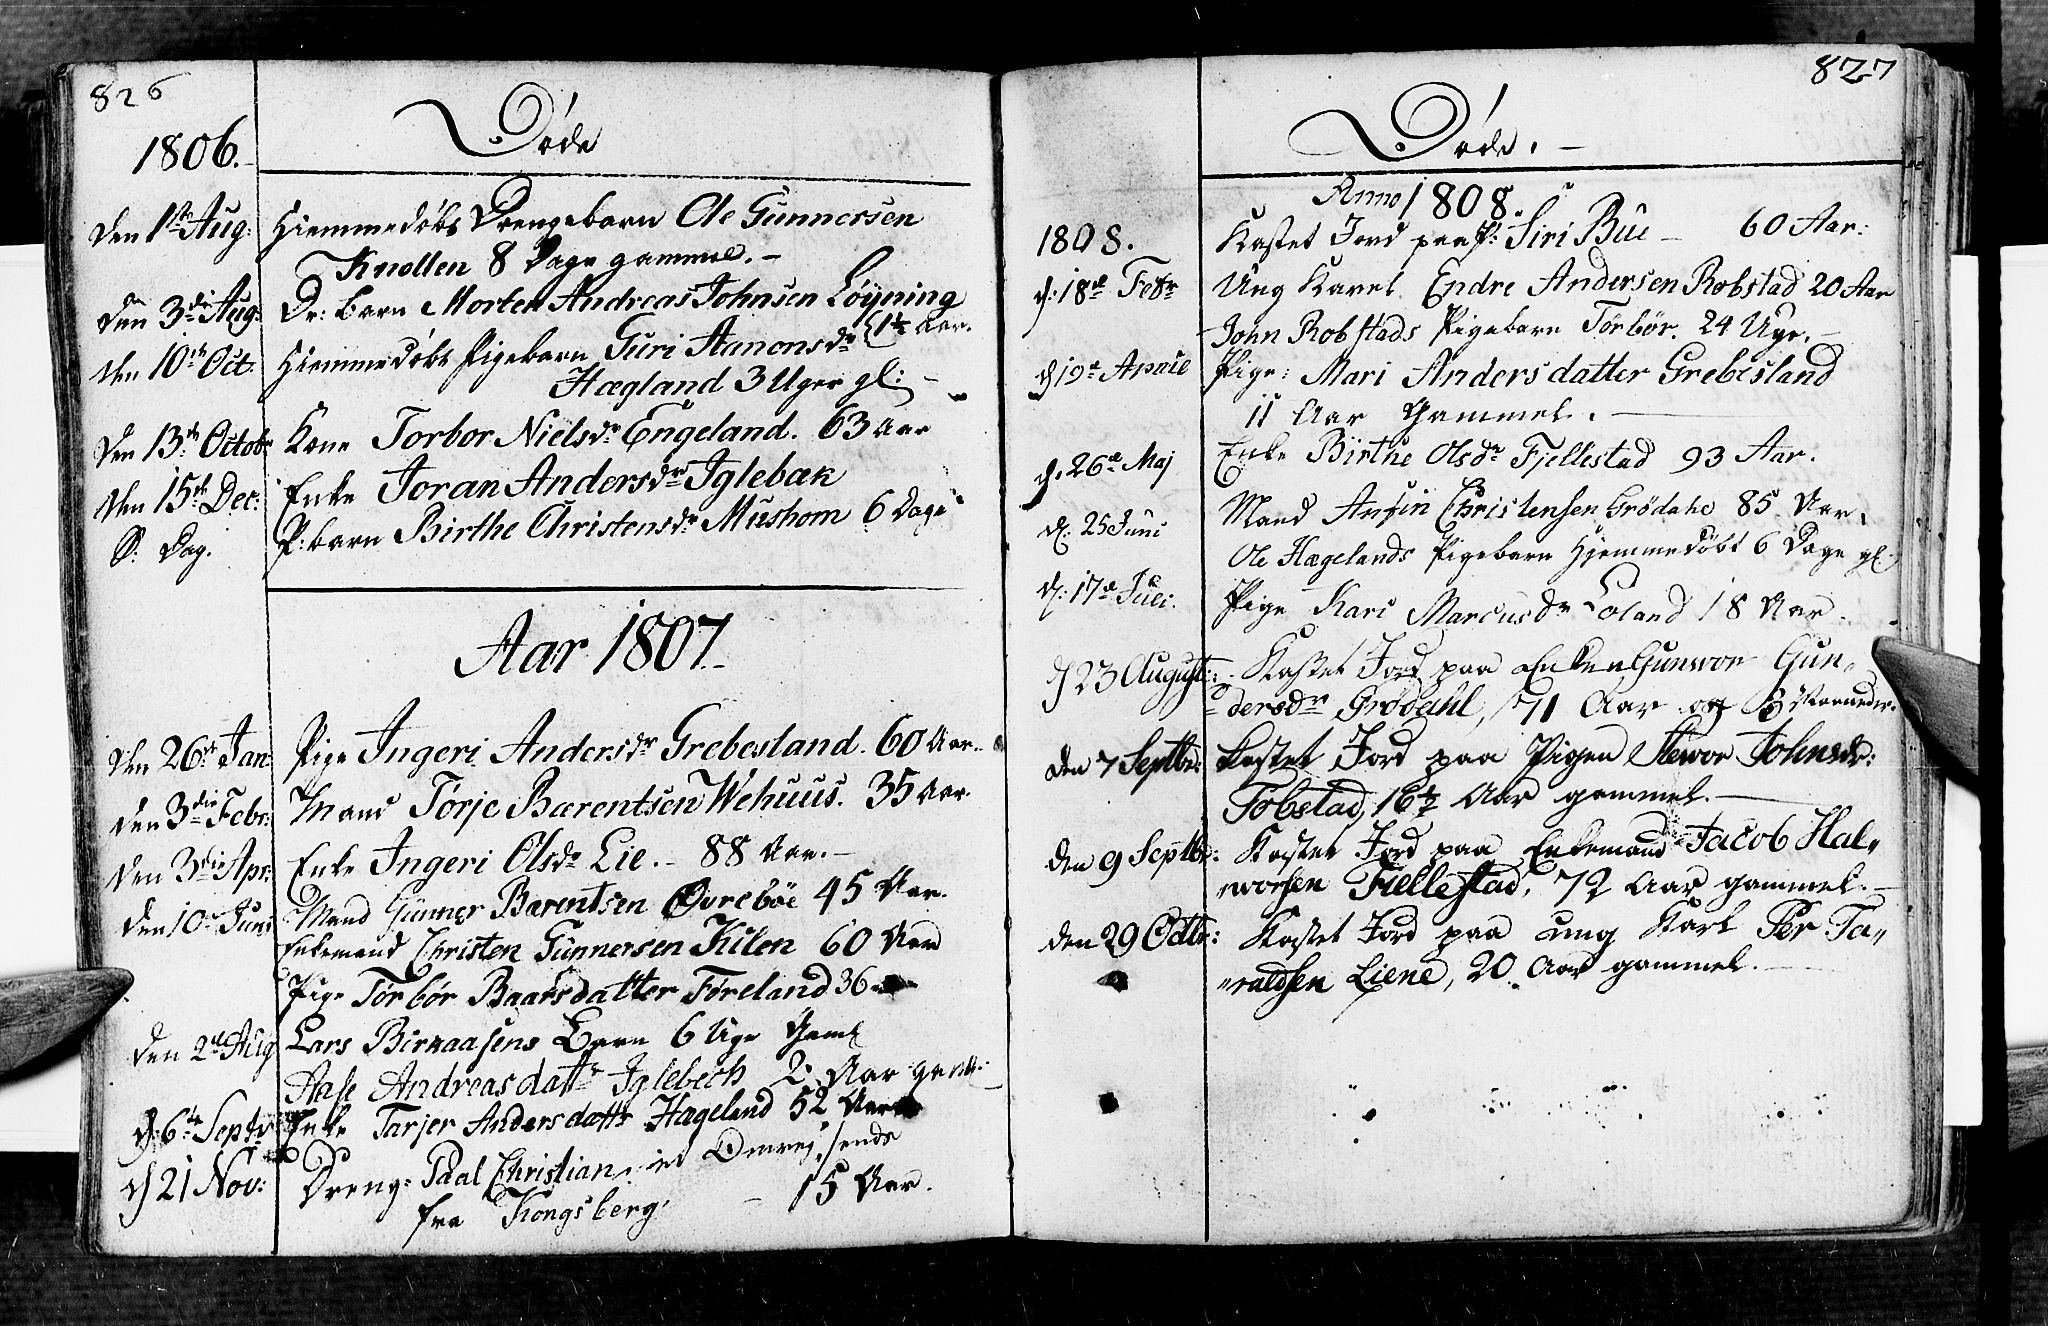 826
Døde
1806.
den 1ste Aug: Hiemmedøbt Drengebarn Ole Gunnersen
Knollen 8 Dage gammel. –
den 3die Aug: Dr: barn Morten Andreas Johnsen Løyning
1½ Aar.
den 10de Oct: Hiemmedøbt Pigebarn Guri Aanonsdr
Hægland 3 Uger gl: –
den 13de Octob: Kone Torbor Nielsdr Engeland. 63 Aar
den 15de Dec: Enke Joran Andersdr Iglebæk
S. Dag. P: barn Birthe Christensdr Mushom 6 Dage
Aar 1807.
den 26de Jan: Pige Ingeri Andersdr Grebesland. 60 Aar.
den 3die Febr: Mand Tørje Barentsen Wehuus. 35 Aar.
den 3die Apr: Enke Ingeri Olsdr Lie. – 88 Aar. –
den 10de Juni Mand Gunner Barentsen Øvrebøe 45 Aar.
Enkemand Christen Gunnersen Kilen 60 Aar
Pige Tørbør Baarsdatter Føreland 36
den 2de Aug Lars Birkaasens Barn 6 Uge Gaml
Aase Andreasdatr Iglebech 2 Aar gaml:
d: 6te Septr Enke Tarjer Andersdattr Hægeland 52 Aar
d 21 Nov: Dreng: Paal Christian, et Omrejsende
fra Kongsberg. – 15 Aar.
827
Døde. –
Anno 1808.
1808. Kastet Jord paa P: Siri Bue – 60 Aar:
d: 18de Febr Ung Karl Endre Andersen Robstad 20 Aar
John Robstads Pigebarn Tørbør. 24 Uge. –
d 19de Aprile Pige: Mari Andersdatter Grebesland
11 Aar Gammel. –
d. 26de Maj Enke Birthe Olsdr Fjellestad 93 Aar.
Mand Anfin Christensen Grödahl 85 Aar.
d. 25 Juni Ole Hægelands Pigebarn Hjemmedöbt 6 Dage gl.
d. 17de Juli. Pige Kari Marcusdr Loland 18 Aar.
d 23 August: Kastet Jord paa Enken Gunvor Gun„
„dersdr Grödahl, 71 Aar og 3 Maaneder.
den 7 Septbr: Kastet Jord paa Pigen Stevor Johnsdr:
Tobstad, 16½ Aar gammel. –
den 9 Septbr: Kastet Jord paa Enkemand Jacob Hal„
„worsen Fiellestad, 72 Aar gammel. –
den 29 Octbr: Kastet Jord paa ung Karl Per Ta„
„raldsen Liene, 20 Aar gammel. –